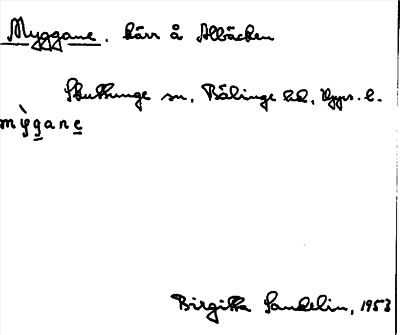 Myggane. kärr å Allbäcken
Skuttunge sn, Bälinge hd, Upps. l.
mỳgane
Birgitta Sandelin, 1953